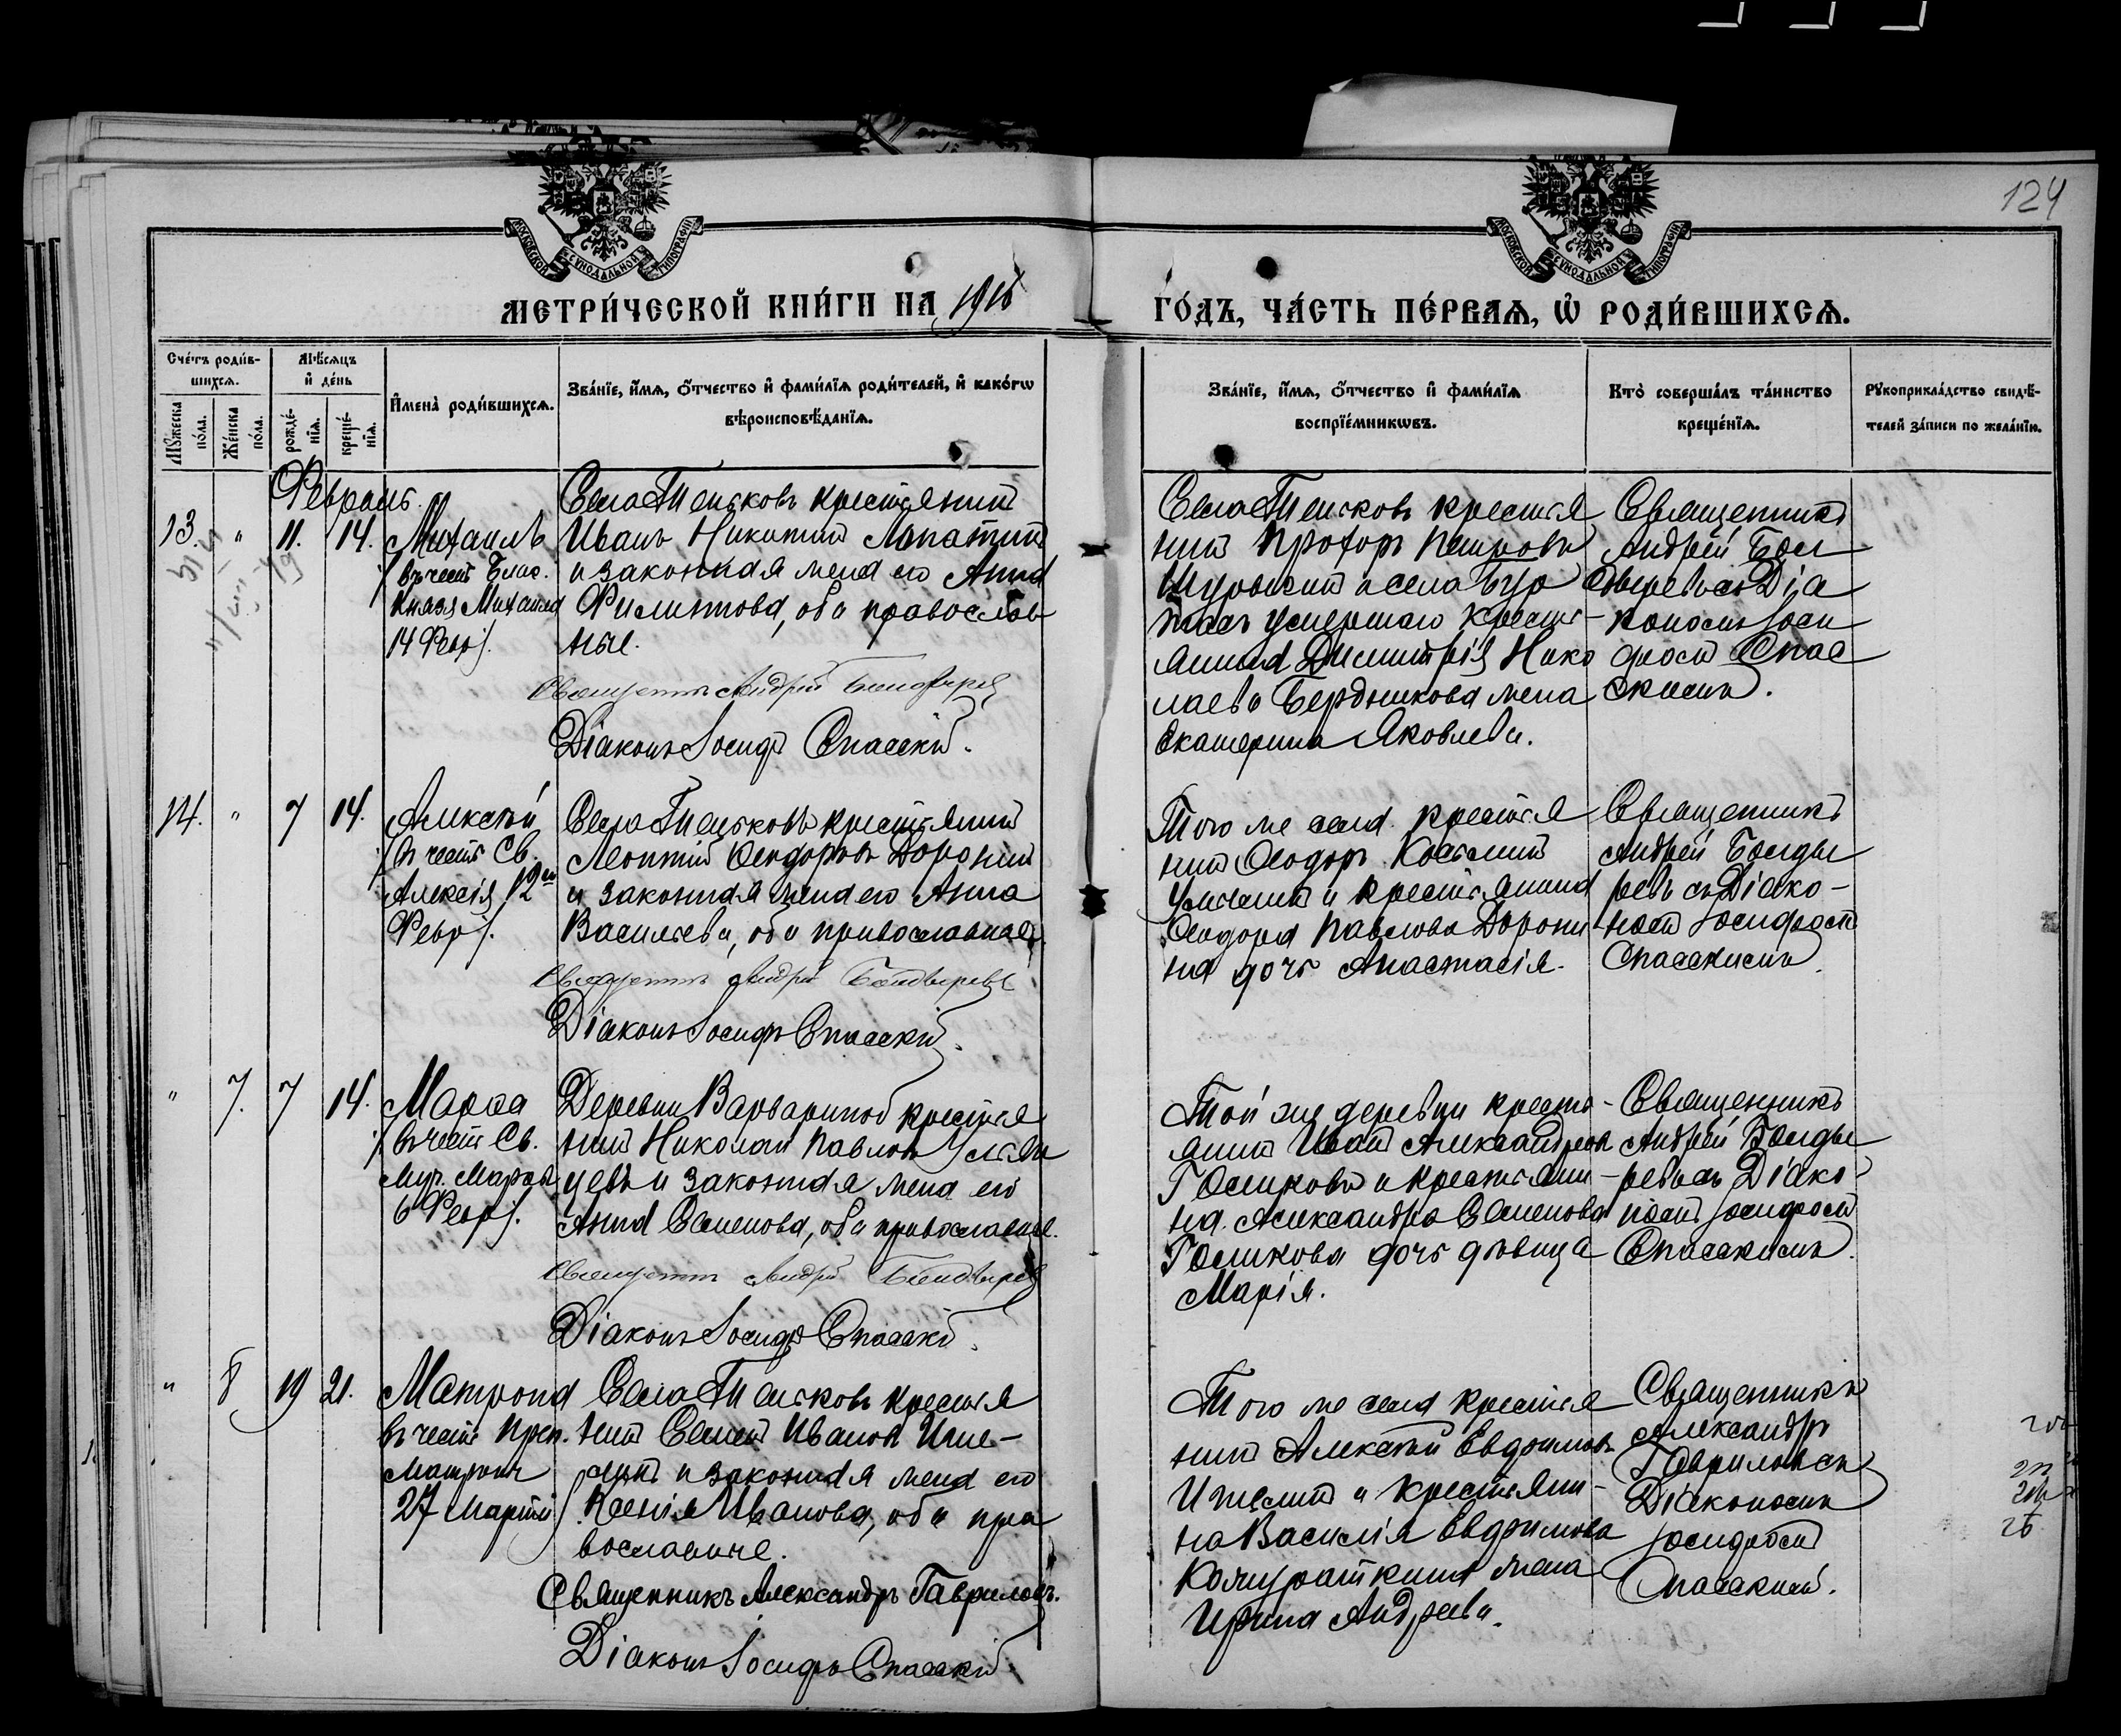 124
МОСКОВСКОЙ СУНОДАЛЬНОЙ ТИПОГРАФІИ
МОСКОВСКОЙ СУНОДАЛЬНОЙ ТИПОГРАФІИ
МЕТРИ́ЧЕСКОЙ КНИ́ГИ НА 1916
ГО́ДЪ, ЧА́СТЬ ПЕ́РВАѦ, Ѡ҆ РОДИ́ВШИХСѦ.
Сче́тъ роди́в-
шихсѧ.
Мꙋ́жеска
по́ла.
Же́нска
по́ла.
Мѣ́сѧцъ
и҆ де́нь
рожде́-
нїѧ.
креще́-
нїѧ.
И҆мена̀ роди́вшихсѧ.
Зва́нїе, и҆́мѧ, ѻ҆́тчество и҆ фами́лїѧ роди́телей, и҆ како́гѡ
вѣроисповѣ́данїѧ.
Зва́нїе, и҆́мѧ, ѻ҆́тчество и҆ фами́лїѧ
воспрїе́мникѡвъ.
Кто̀ соверша́лъ та́инство
креще́нїѧ.
Рꙋкоприкла́дство свидѣ́-
телей за́писи по жела́нїю.
Февраль.
13. " 11. 14.
Михаилъ
/въ честь Благ.
Князя Михаила
14 Февр/.
Села крестьянинъ
Иванъ Никитинъ Лопатинъ
и законная жена его Анна
Филиппова, оба православ
ные.
Священникъ Андрей
Діаконъ Іосифъ Спасскій.
Села крестья
нинъ Прохоръ Петровъ
и села
умершаго кресть-
янина Димитрія Нико
лаева Бердникова жена
Екатерина Яковлева.
Священникъ
Андрей
съ Діа
кономъ Іоси
фомъ Спас
скимъ.
14. " 7 14.
Алексѣй
/въ честь Св.
Алексія 12го
Февр/.
Села крестьянинъ
Леонтій Ѳеодоровъ Доронинъ
и законная жена его Анна
Васильева, оба православные.
Священникъ Андрей
Діаконъ Іосифъ Спасскій.
Того же села крестья
нинъ Ѳеодоръ
и крестьянина
Ѳеодора Павлова Дорони
на дочь Анастасія.
Священникъ
Андрей
съ Діако-
номъ Іосифомъ
Спасскимъ.
" 7. 7 14.
Марѳа
/въ честь Св.
Муч. Марѳы
6 Февр/.
Деревни Варвариной крестья
нинъ Николай Павловъ Ульян
цевъ и законная жена его
Анна Семенова, оба православные.
Священникъ Андрей
Діаконъ Іосифъ Спасскій.
Той же деревни кресть-
янинъ Иванъ Александровъ
Голиковъ и крестьяни-
на Александра Семенова
Голикова дочь дѣвица
Марія.
Священникъ
Андрей
съ Діако-
номъ Іосифомъ
Спасскимъ.
" 8 19 21.
Матрона
въ честь Преп.
Матроны
27 Марта/
Села крестья
нинъ Семенъ Ивановъ
и законная жена его
Ксенія Иванова, оба пра
вославные.
Священникъ Александръ Гавриловъ.
Діаконъ Іосифъ Спасскій.
Того же села крестья
нинъ Алексѣй Евфимовъ
и крестьяни-
на Василія Евфимова
жена
Ирина Андреева.
Священникъ
Александръ
Гавриловъ съ
Діакономъ
Іосифомъ
Спасскимъ.